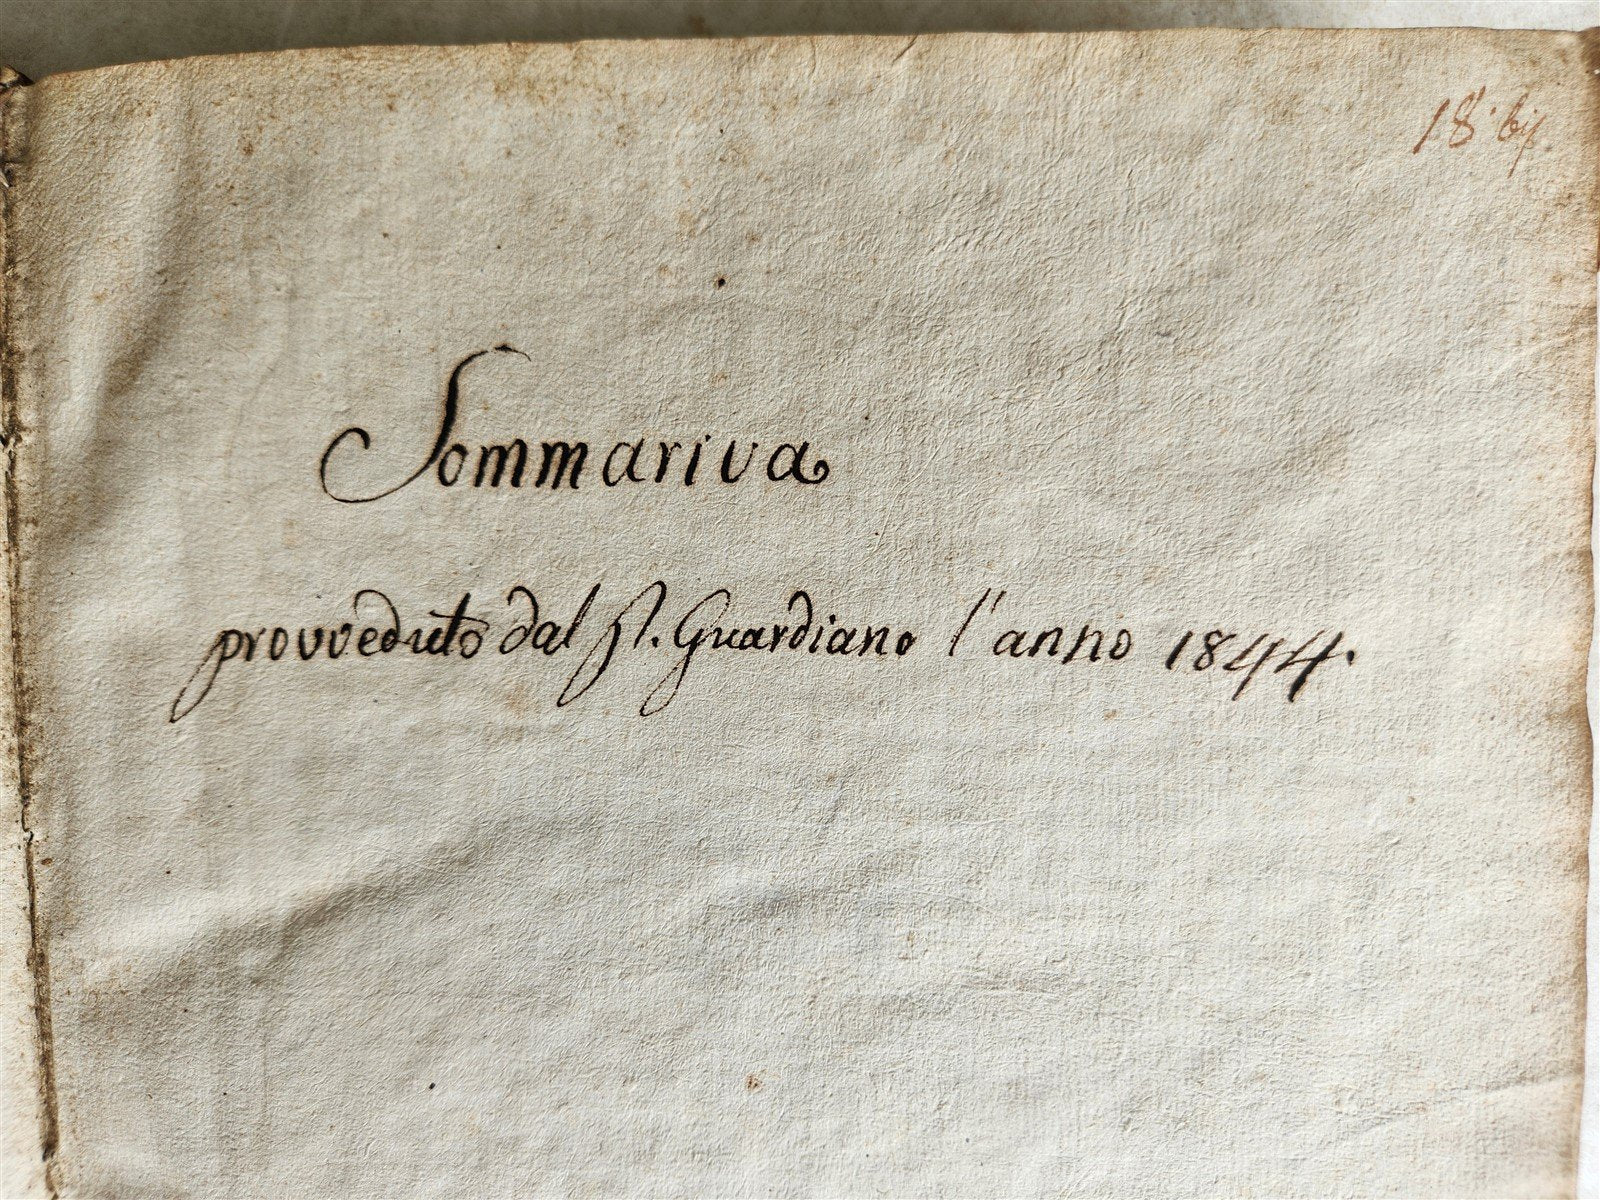 18. bis
Sommariva
provveduto dal P. Guardiano l'anno 1844.